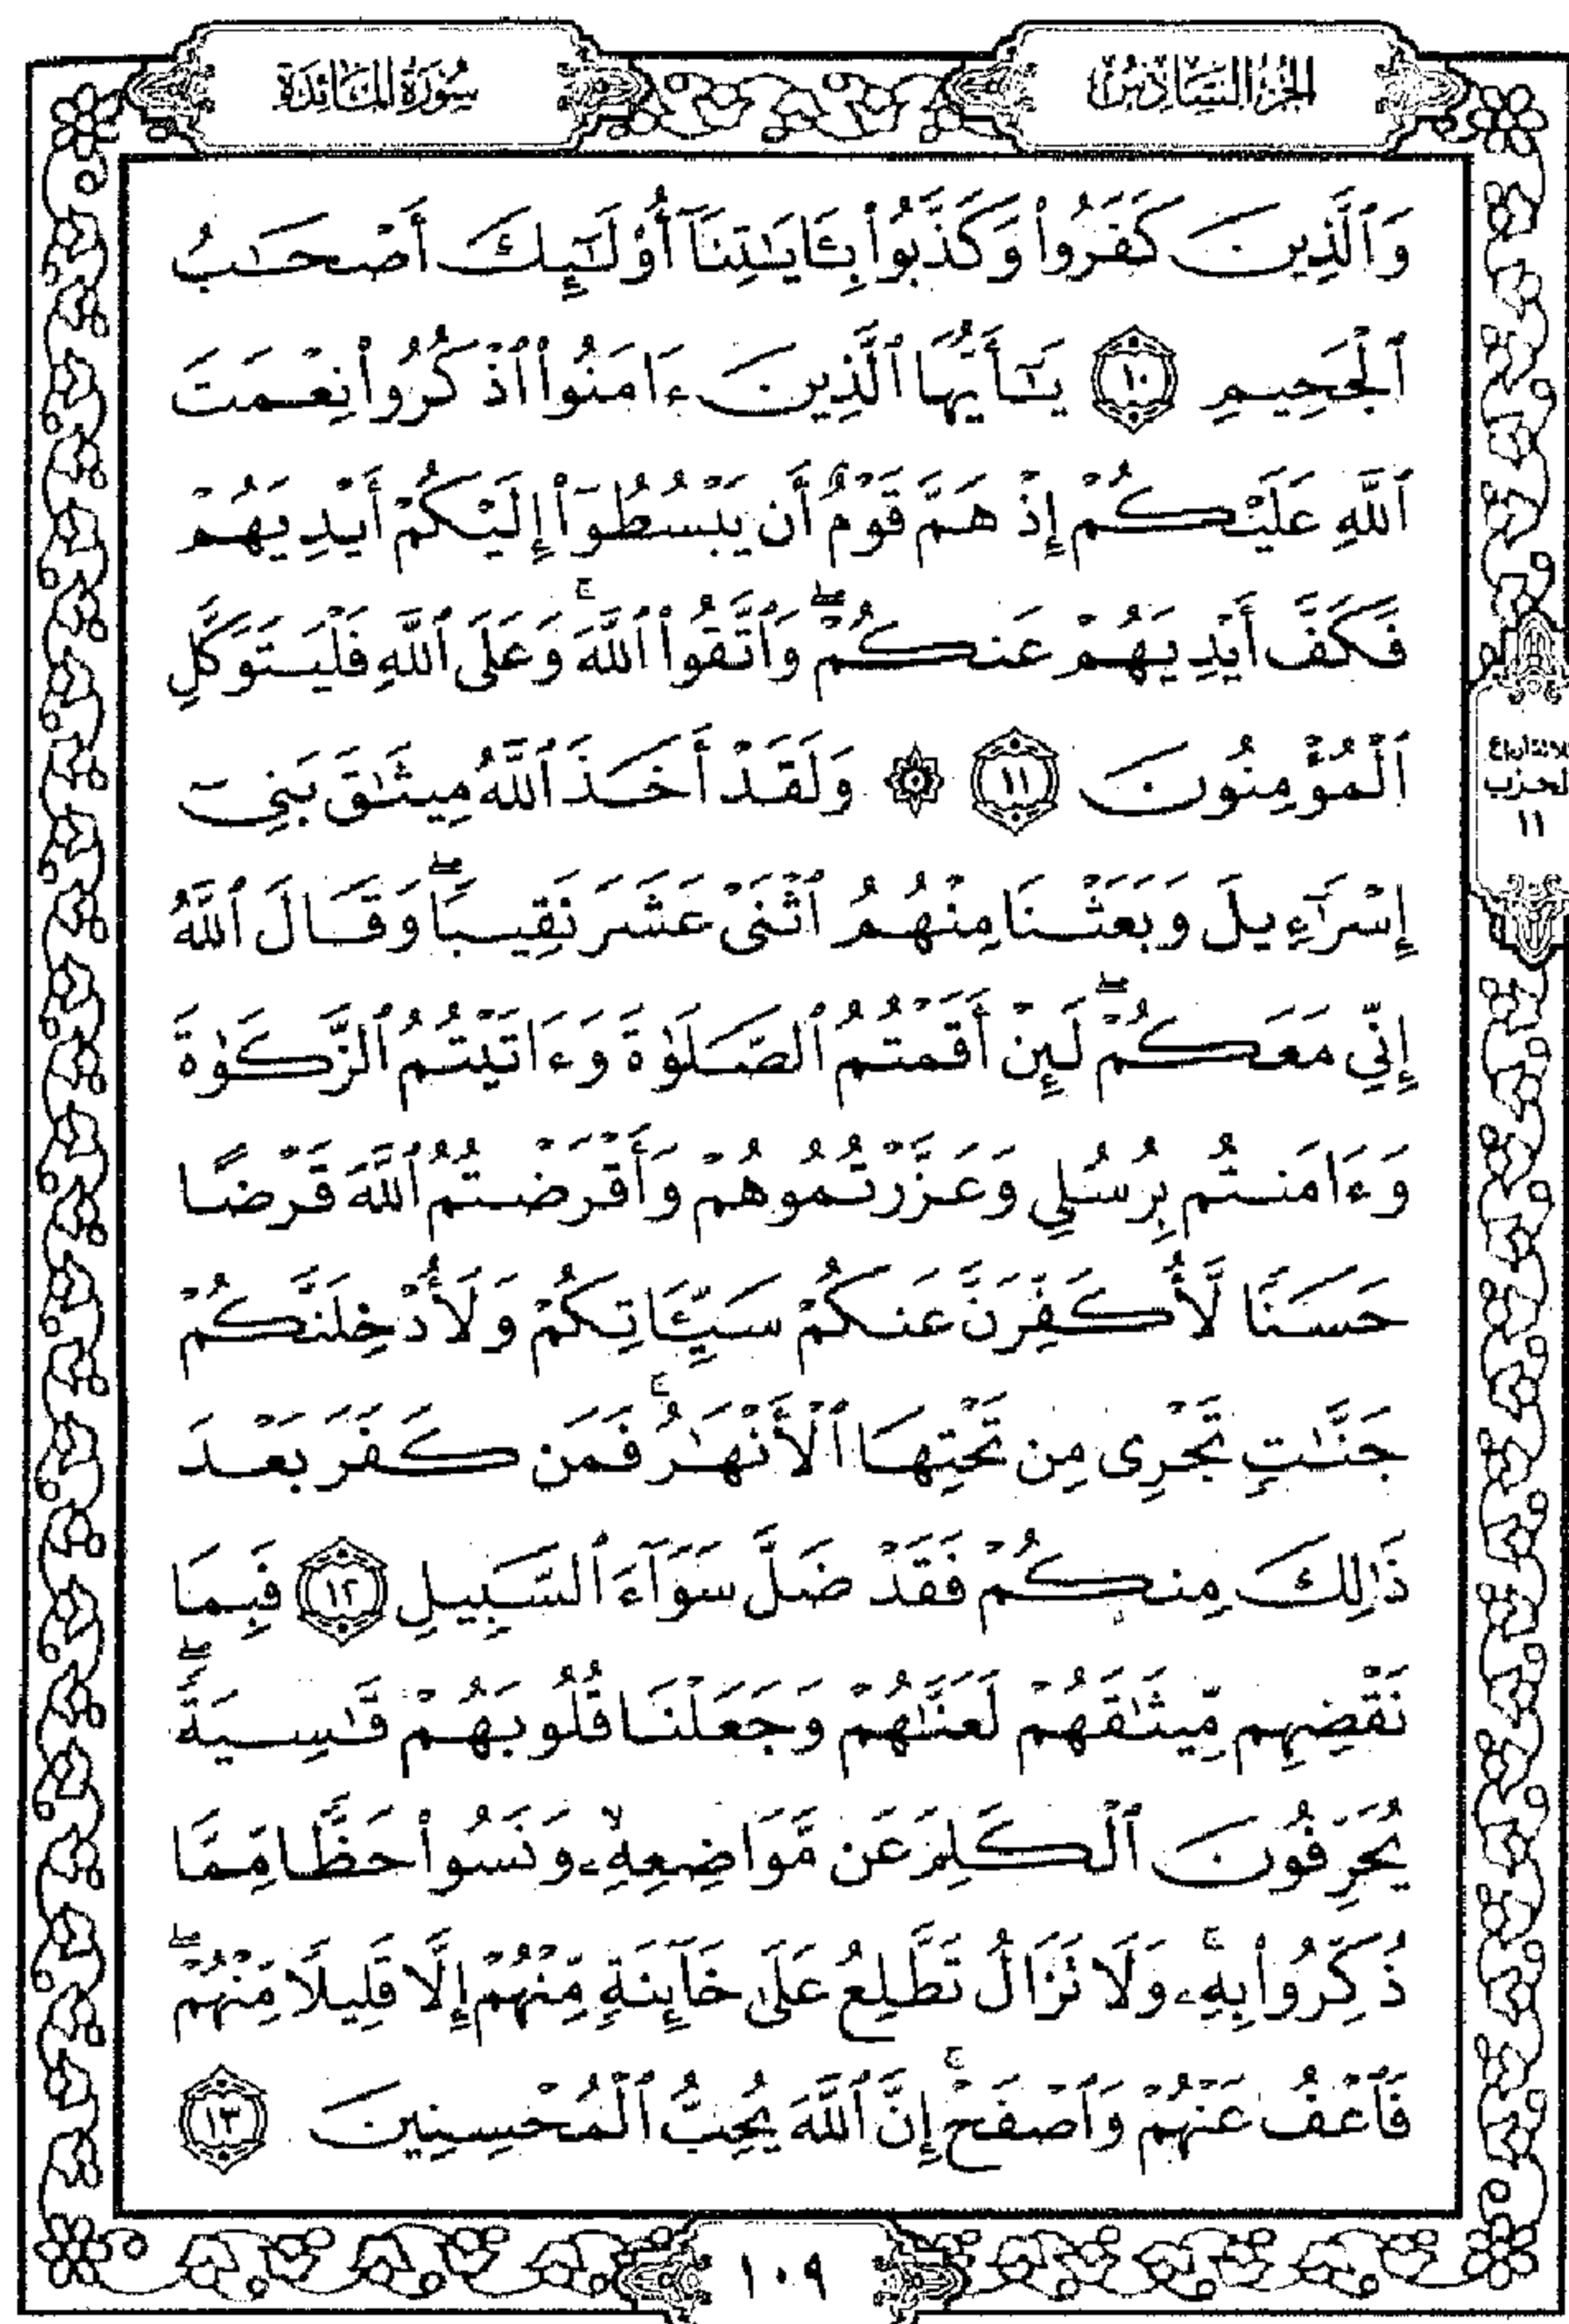 الجزء السادس
سورة المائدة
وَٱلَّذِينَ كَفَرُوا۟ وَكَذَّبُوا۟ بِـَٔايَـٰتِنَآ أُو۟لَـٰٓئِكَ أَصْحَـٰبُ
ٱلْجَحِيمِ ١٠ يَـٰٓأَيُّهَا ٱلَّذِينَ ءَامَنُوا۟ ٱذْكُرُوا۟ نِعْمَتَ
ٱللَّهِ عَلَيْكُمْ إِذْ هَمَّ قَوْمٌ أَن يَبْسُطُوٓا۟ إِلَيْكُمْ أَيْدِيَهُمْ
فَكَفَّ أَيْدِيَهُمْ عَنكُمْ ۖ وَٱتَّقُوا۟ ٱللَّهَ ۚ وَعَلَى ٱللَّهِ فَلْيَتَوَكَّلِ
ٱلْمُؤْمِنُونَ ١١ ۞ وَلَقَدْ أَخَذَ ٱللَّهُ مِيثَـٰقَ بَنِىٓ
إِسْرَٰٓءِيلَ وَبَعَثْنَا مِنْهُمُ ٱثْنَىْ عَشَرَ نَقِيبًا ۖ وَقَالَ ٱللَّهُ
إِنِّى مَعَكُمْ ۖ لَئِنْ أَقَمْتُمُ ٱلصَّلَوٰةَ وَءَاتَيْتُمُ ٱلزَّكَوٰةَ
وَءَامَنتُم بِرُسُلِى وَعَزَّرْتُمُوهُمْ وَأَقْرَضْتُمُ ٱللَّهَ قَرْضًا
حَسَنًا لَّأُكَفِّرَنَّ عَنكُمْ سَيِّـَٔاتِكُمْ وَلَأُدْخِلَنَّكُمْ
جَنَّـٰتٍ تَجْرِى مِن تَحْتِهَا ٱلْأَنْهَـٰرُ ۚ فَمَن كَفَرَ بَعْدَ
ذَٰلِكَ مِنكُمْ فَقَدْ ضَلَّ سَوَآءَ ٱلسَّبِيلِ ١٢ فَبِمَا
نَقْضِهِم مِّيثَـٰقَهُمْ لَعَنَّـٰهُمْ وَجَعَلْنَا قُلُوبَهُمْ قَـٰسِيَةً ۖ
يُحَرِّفُونَ ٱلْكَلِمَ عَن مَّوَاضِعِهِۦ ۙ وَنَسُوا۟ حَظًّا مِّمَّا
ذُكِّرُوا۟ بِهِۦ ۚ وَلَا تَزَالُ تَطَّلِعُ عَلَىٰ خَآئِنَةٍ مِّنْهُمْ إِلَّا قَلِيلًا مِّنْهُمْ ۖ
فَٱعْفُ عَنْهُمْ وَٱصْفَحْ ۚ إِنَّ ٱللَّهَ يُحِبُّ ٱلْمُحْسِنِينَ ١٣
١١
١٠٩